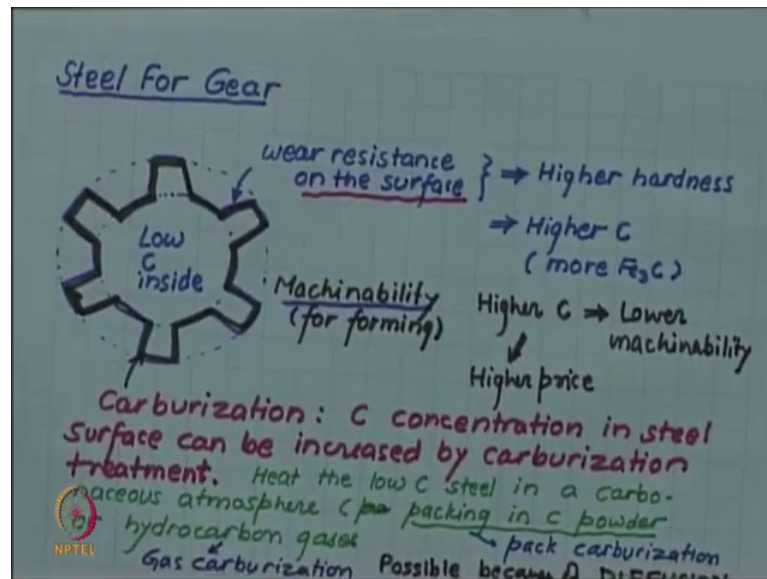 Steel For Gear
wear resistance
on the surface } ⇒ Higher hardness
⇒ Higher C
(more Fe₃C)
Low
C
inside
Machinability
(for forming)
Higher C ⇒ Lower
machinability
Higher price
Carburization: C concentration in steel
surface can be increased by carburization
treatment. Heat the low C steel in a carbo-
naceous atmosphere ( packing in C powder
hydrocarbon gases
pack carburization
Gas carburization Possible because DIFFUSION
NPTEL